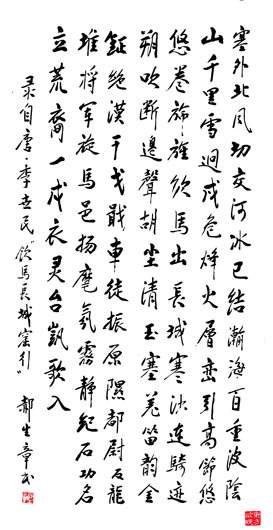 塞外北风切交河冰已结瀚海百重波陰
山千里雪迥戍危烽火層峦引高節悠
悠卷旆旌饮馬出長城寒沙連騎迹
朔吹断邊聲胡尘清玉塞羌笛韵金
钲绝漠干戈戢車徒振原隰都尉反龍
堆将军旋馬邑扬麾氛霧静纪石功名
立荒裔一戎衣灵台凱歌入
录自唐·李世民"饮馬長城窟引" 郝生章书